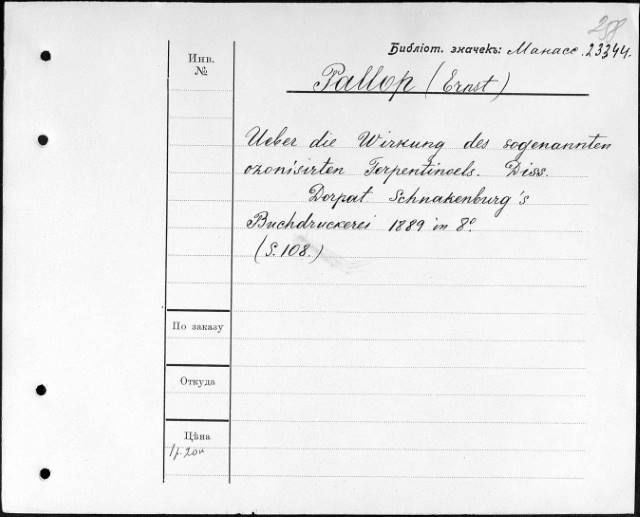 258
Библіот. значекъ: Манасс. 23344.
Инв.
№
Pallop (Ernst)
Ueber die Wirkung des sogenannten
ozonisirten Terpentinoels. Diss.
Dorpat Schnakenburg's
Buchdruckerei 1889 in 8°.
(S. 108.)
По заказу
Откуда
Цѣна